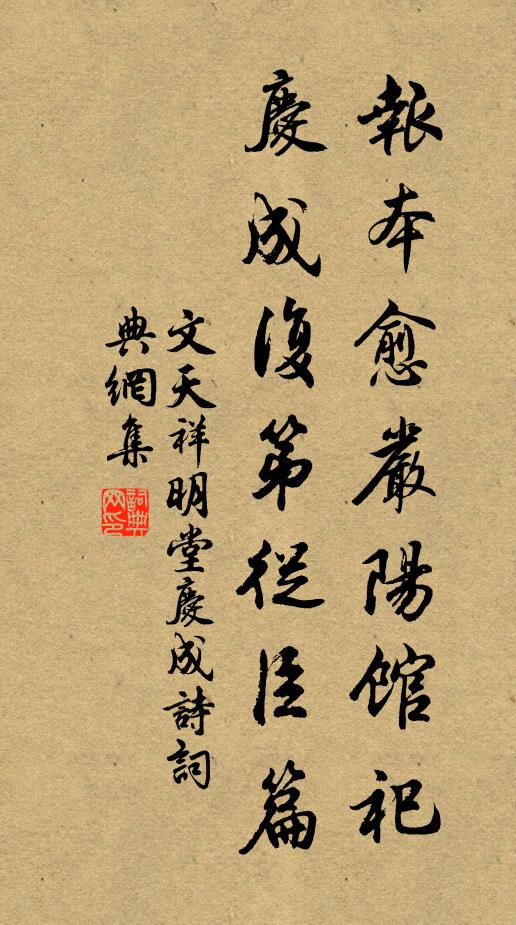 報本愈嚴陽館祀
慶成復第從臣篇
文天祥明堂慶成詩詞
典網集
詞典網印